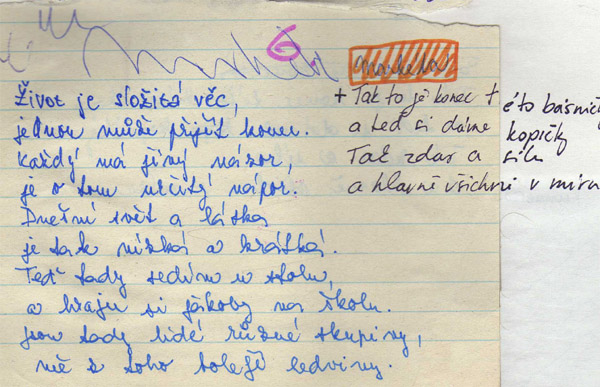 6.
Markéta
Život je složitá věc,
jednou může přijít konec.
Každý má jiný názor,
je o tom určitý nápor.
Dnešní svět a láska
je tak nízká a krátká.
Teď tady sedím u stolu,
a hraju si jakoby na školu.
jsou tady lidé různé skupiny,
mě z toho bolejí ledviny.
+ Tak to je konec + této básničky
a teď si dáme kopičky
Tak zdar a sílu
a hlavně všichni v míru